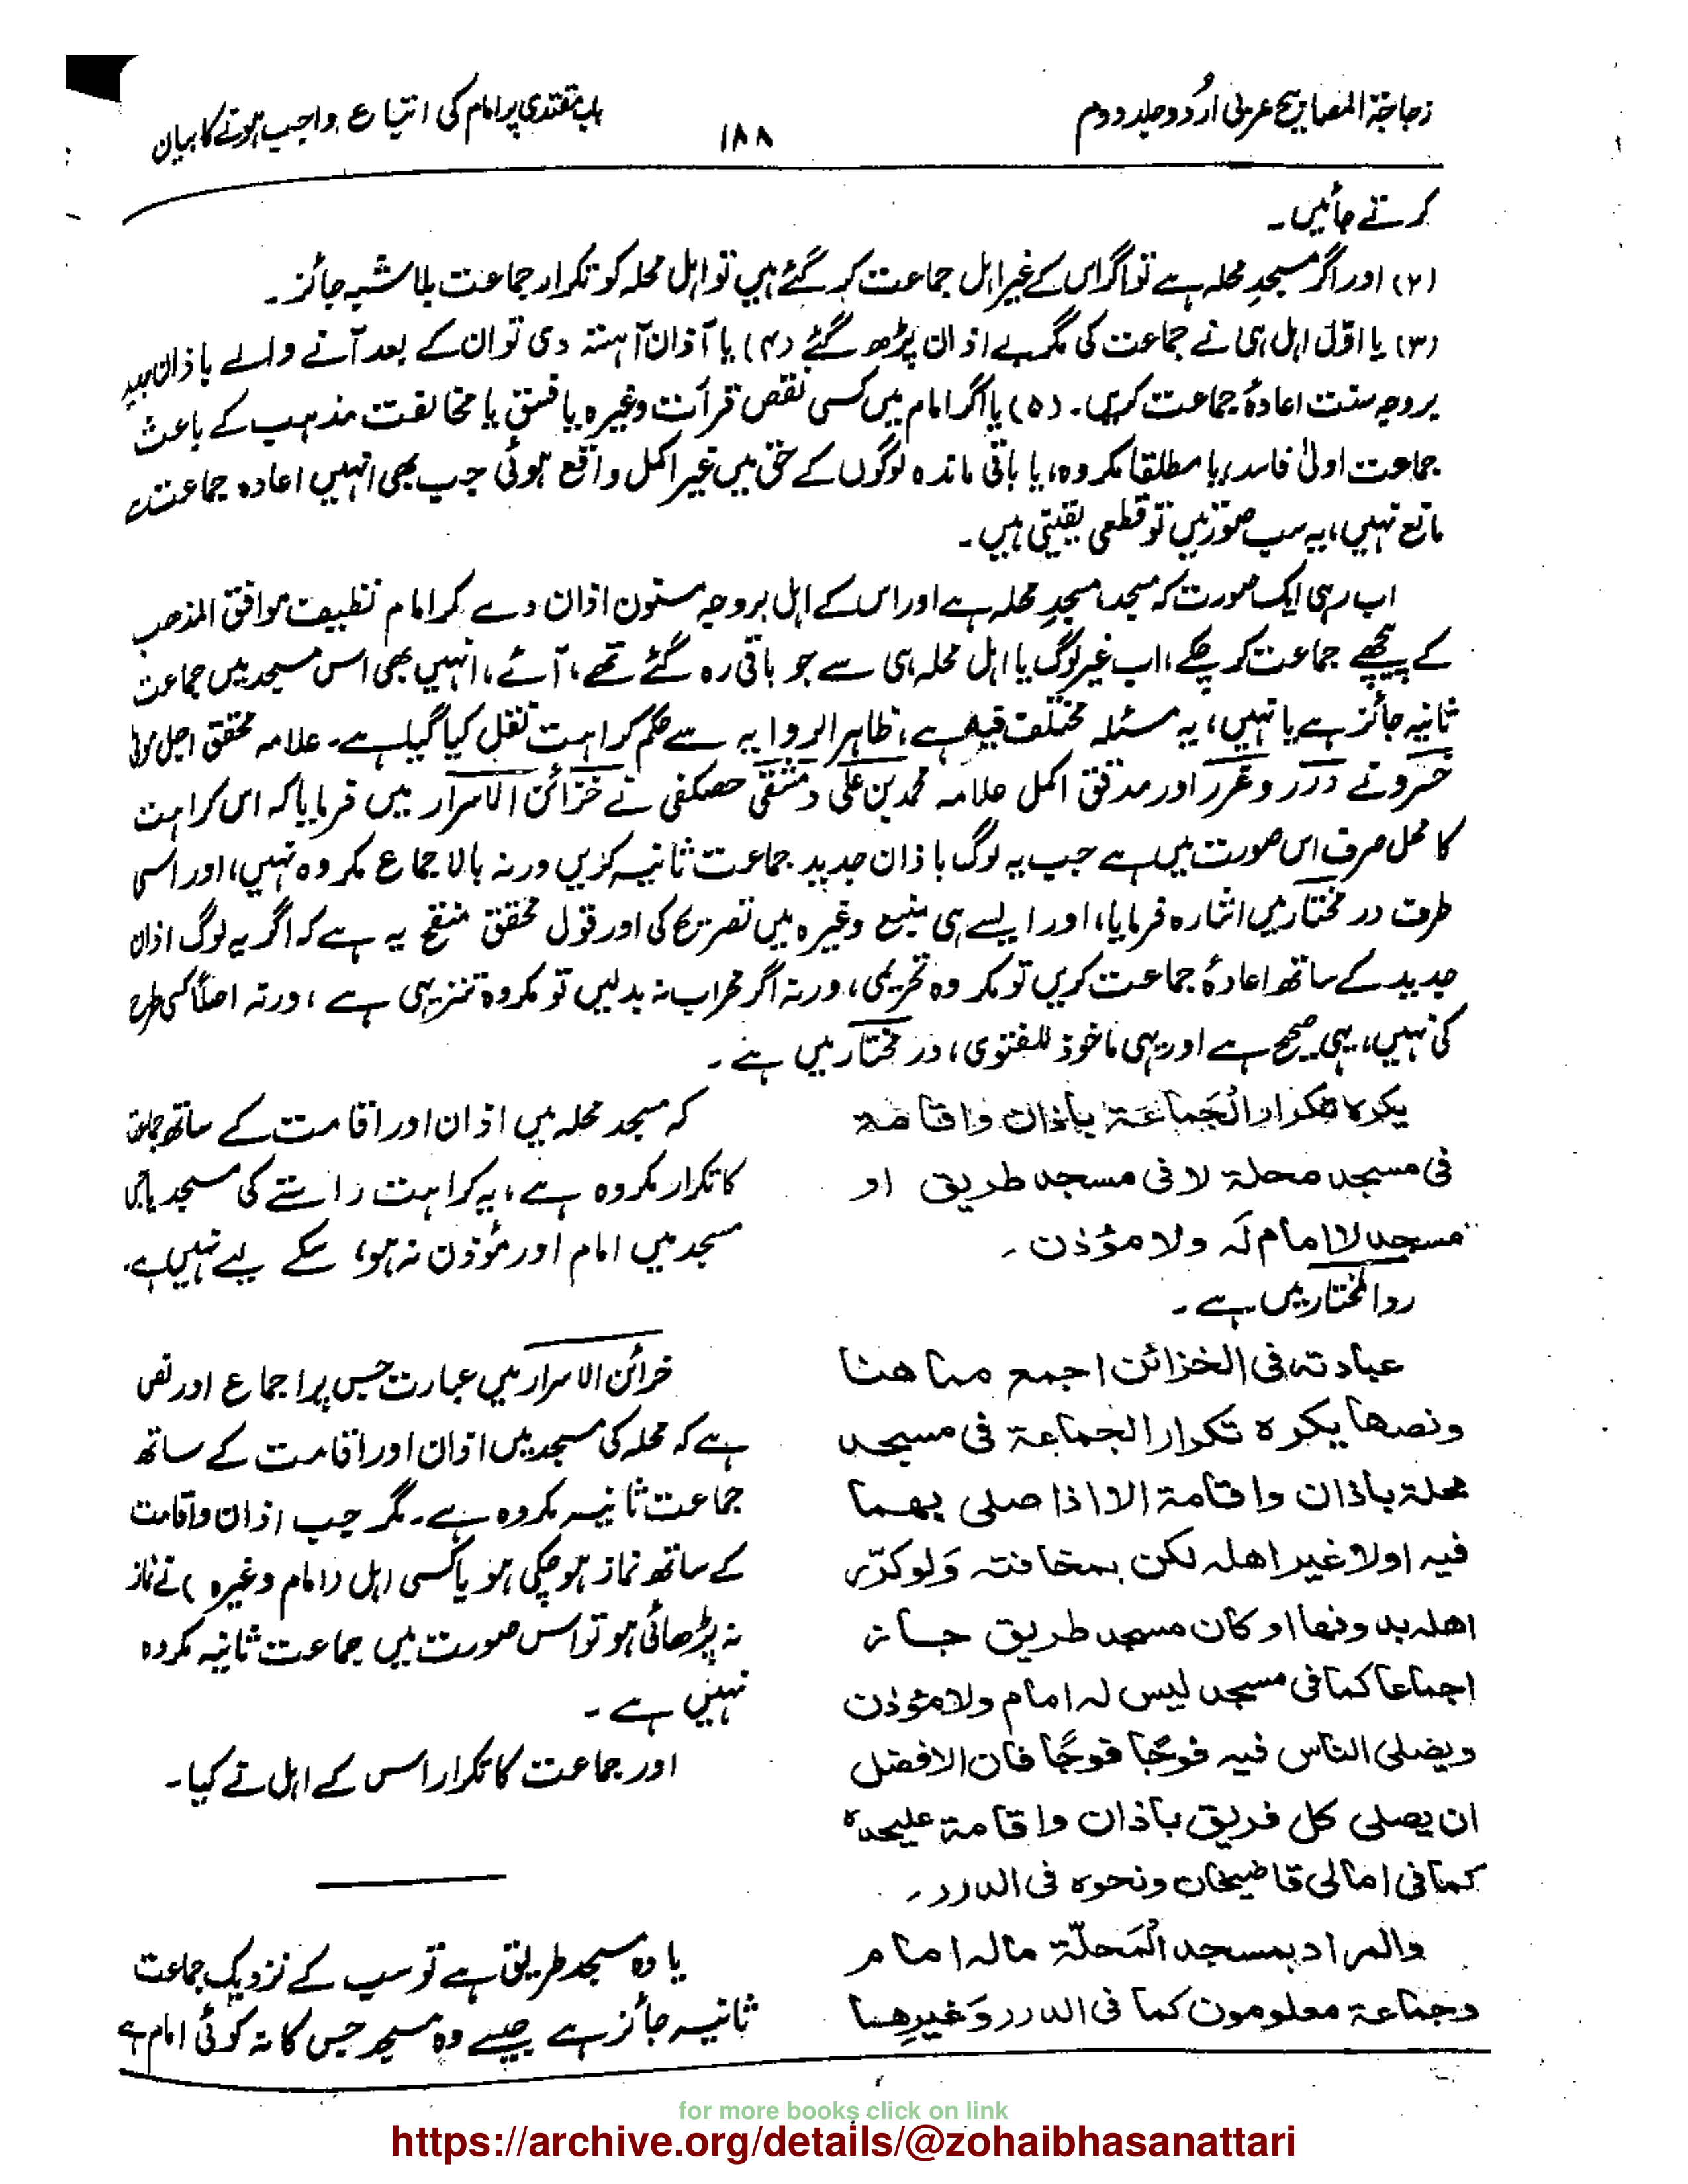 زجاجۃ المصابیح عربی اردو جلد دوم
۱۸۸
باب مقتدی پر امام کی اتباع واجب ہونے کا بیان
کرتے جائیں۔
(۲) اور اگر مسجدِ محلہ ہے تو اگر اس کے غیر اہل جماعت کر گئے ہیں تو اہل محلہ کو تکرار جماعت بلا شبہ جائز۔
(۳) یا اوّل اہل ہی نے جماعت کی مگر بے اذان پڑھ گئے (۴) یا آذان آہستہ دی تو ان کے بعد آنے والے باذان جدید
بروجہ سنت اعادۂ جماعت کریں۔ (۵) یا اگر امام میں کسی نقص قرأت وغیرہ یا فسق یا مخالفت مذہب کے باعث
جماعت اولیٰ فاسد، یا مطلقا مکروہ، یا باقی ماندہ لوگوں کے حق میں غیر اکمل واقع ہوئی جب بھی انہیں اعادہ جماعت سے
مانع نہیں، یہ سب صورتیں تو قطعی یقینی ہیں۔
اب رہی ایک صورت کہ مسجد، مسجدِ محلہ ہے اور اس کے اہل بروجہ مسنون اذان دے کر امام نظیف موافق المذھب
کے پیچھے جماعت کر چکے، اب غیر لوگ یا اہل محلہ ہی سے جو باقی رہ گئے تھے، آئے، انہیں بھی اس مسجد میں جماعت
ثانیہ جائز ہے یا نہیں، یہ مسئلہ مختلف فیہ ہے، ظاہر الروایہ سے حکم کراہت نقل کیا گیا ہے۔ علامہ محقق اجل مولیٰ
خسرو نے درر و غرر اور مدقق اکمل علامہ محمد بن علی دمشقی حصکفی نے خزائن الاسرار میں فرمایا کہ اس کراہت
کا محل صرف اس صورت میں ہے جب یہ لوگ باذان جدید جماعت ثانیہ کریں ورنہ بالاجماع مکروہ نہیں، اور اسی
طرف در مختار میں اشارہ فرمایا، اور ایسے ہی منبع وغیرہ میں تصریح کی اور قول محقق منقح یہ ہے کہ اگر یہ لوگ اذان
جدید کے ساتھ اعادۂ جماعت کریں تو مکروہ تحریمی، ورنہ اگر محراب نہ بدلیں تو مکروہ تنزیہی ہے، ورنہ اصلاً کسی طرح
کی نہیں، یہی صحیح ہے اور یہی ماخوذ للفتوی، در مختار میں ہے۔
یکرہ تکرار الجَماعَۃ باذان واقامۃ
فی مسجد محلۃ لا فی مسجد طریق او
مسجد لا امام لَہ ولا مؤذن۔
کہ مسجد محلہ میں اذان اور اقامت کے ساتھ جماعت
کا تکرار مکروہ ہے، یہ کراہت راستے کی مسجد یا جس
مسجد میں امام اور مؤذن نہ ہو، کے لیے نہیں ہے۔
رد المختار میں ہے۔
عبادتہ فی الخزائن اجمع مما ھنا
ونصھا یکرہ تکرار الجماعۃ فی مسجد
محلۃ باذان واقامۃ الا اذا صلی بھما
فیہ اولا غیر اھلہ لکن بمخافتہ وَلو کرّر
اھلہ بدونھا او کان مسجد طریق جاز
اجماعا کما فی مسجد لیس لہ امام ولا مؤذن
ویصلی الناس فیہ فوجًا فوجًا فان الافضل
ان یصلی کل فریق باذان واقامۃ علیحدہ
کما فی امالی قاضیخان ونحوہ فی الدرر۔
والمراد بمسجد المَحلّۃ مالہ امام
وجماعۃ معلومون کما فی الدرر وَغیرِھا
خزائن الاسرار میں عبارت جس پر اجماع اور نص
ہے کہ محلہ کی مسجد میں اذان اور اقامت کے ساتھ
جماعت ثانیہ مکروہ ہے۔ مگر جب اذان واقامت
کے ساتھ نماز ہو چکی ہو یا کسی اہل (امام وغیرہ) نے نماز
نہ پڑھائی ہو تو اس صورت میں جماعت ثانیہ مکروہ
نہیں ہے۔
اور جماعت کا تکرار اس کے اہل نے کیا۔
یا وہ مسجد طریق ہے تو سب کے نزدیک جماعت
ثانیہ جائز ہے جیسے وہ مسجد جس کا نہ کوئی امام ہے
for more books click on link
https://archive.org/details/@zohaibhasanattari